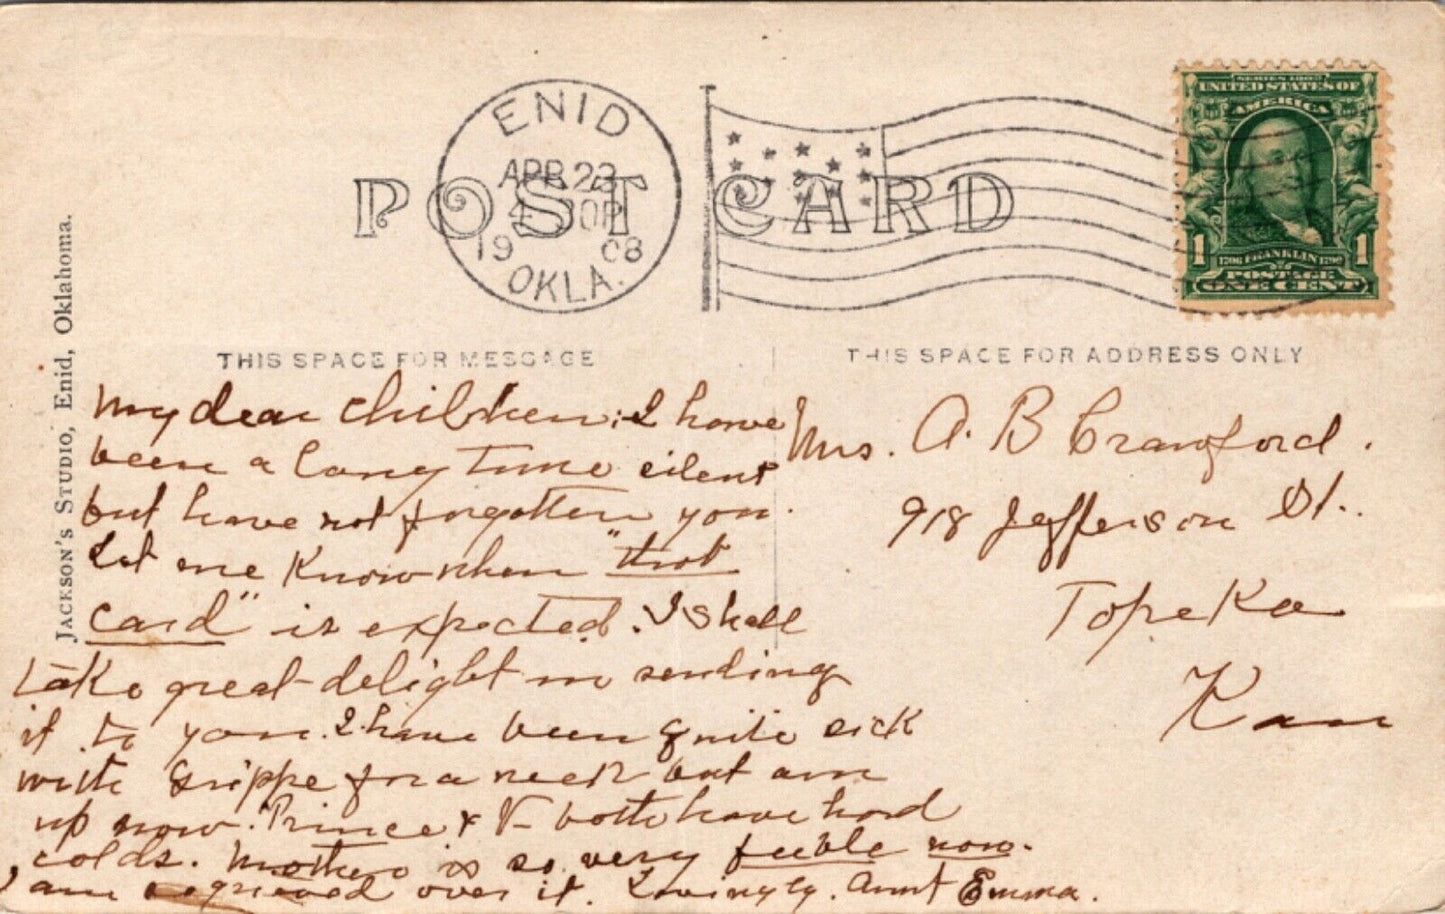 ENID
APR 23
19 08
OKLA.
POST CARD
SERIES 1902
UNITED STATES OF
AMERICA
1 1
FRANKLIN
POSTAGE
ONE CENT
JACKSON'S STUDIO, Enid, Oklahoma.
THIS SPACE FOR MESSAGE
THIS SPACE FOR ADDRESS ONLY
My dear children: I have
been a long time silent
but have not forgotten you.
Let me Know when "that
card" is expected. I shall
take great delight in sending
it to you. I have been quite sick
with Grippe for a week but am
up now. Prince & V– both have hard
colds. Mother is so very feeble now.
I am grieved over it. Lovingly. Aunt Emma.
Mrs. A. B Crawford.
918 Jefferson St.
Topeka
Kan